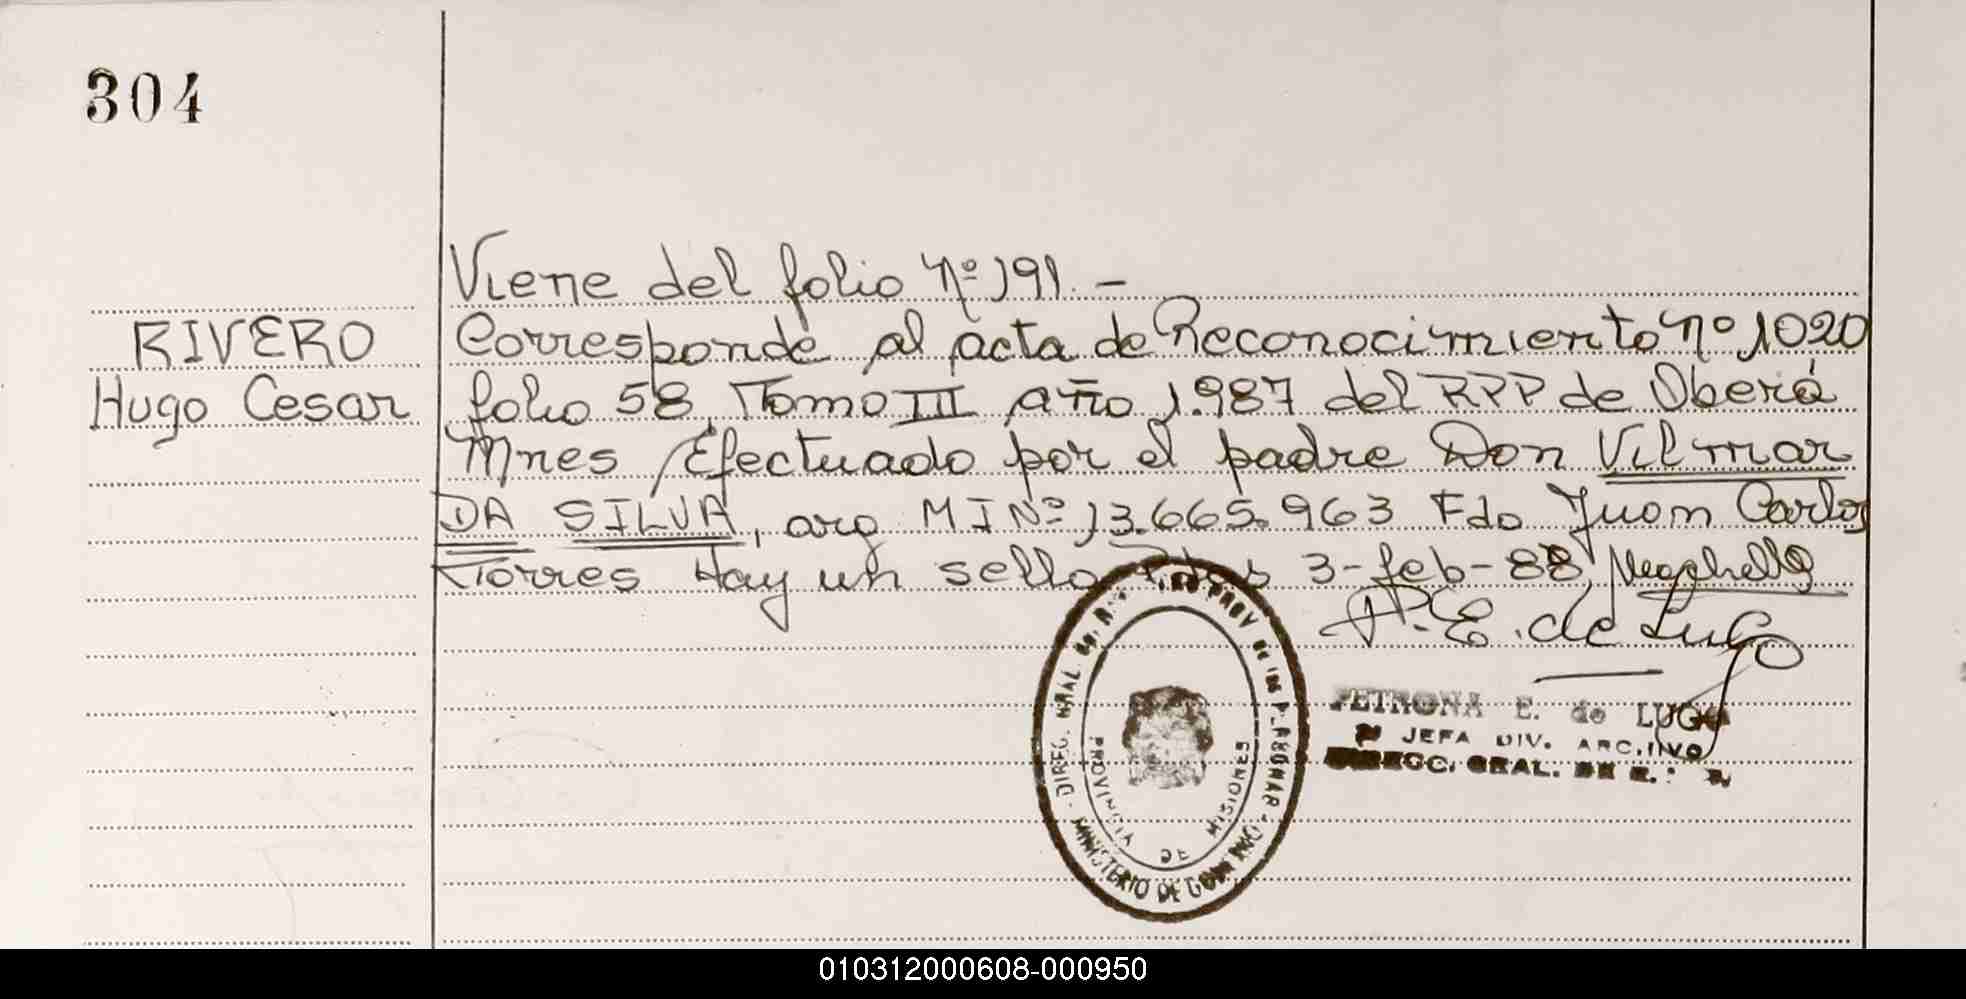 304
Viene del folio Nº 191. -
RIVERO
Hugo Cesar
Corresponde al acta de Reconocimiento Nº 1020
folio 58, Tomo III año 1.987 del RPP de Oberá
Mnes, Efectuado por el padre Don Vilmar
DA SILVA, arg MI Nº 13.665.963 Fdo Juan Carlos
Torres Hay un sello Pdas 3-feb-88
P. E. de Lugo
DIREC. GRAL. PROV. DE LAS PERSONAS
MINISTERIO DE GOBIERNO
PROVINCIA DE MISIONES
PETRONA E. de LUGO
JEFA DIV. ARCHIVO
DIRECC. GRAL. DE R.
010312000608-000950